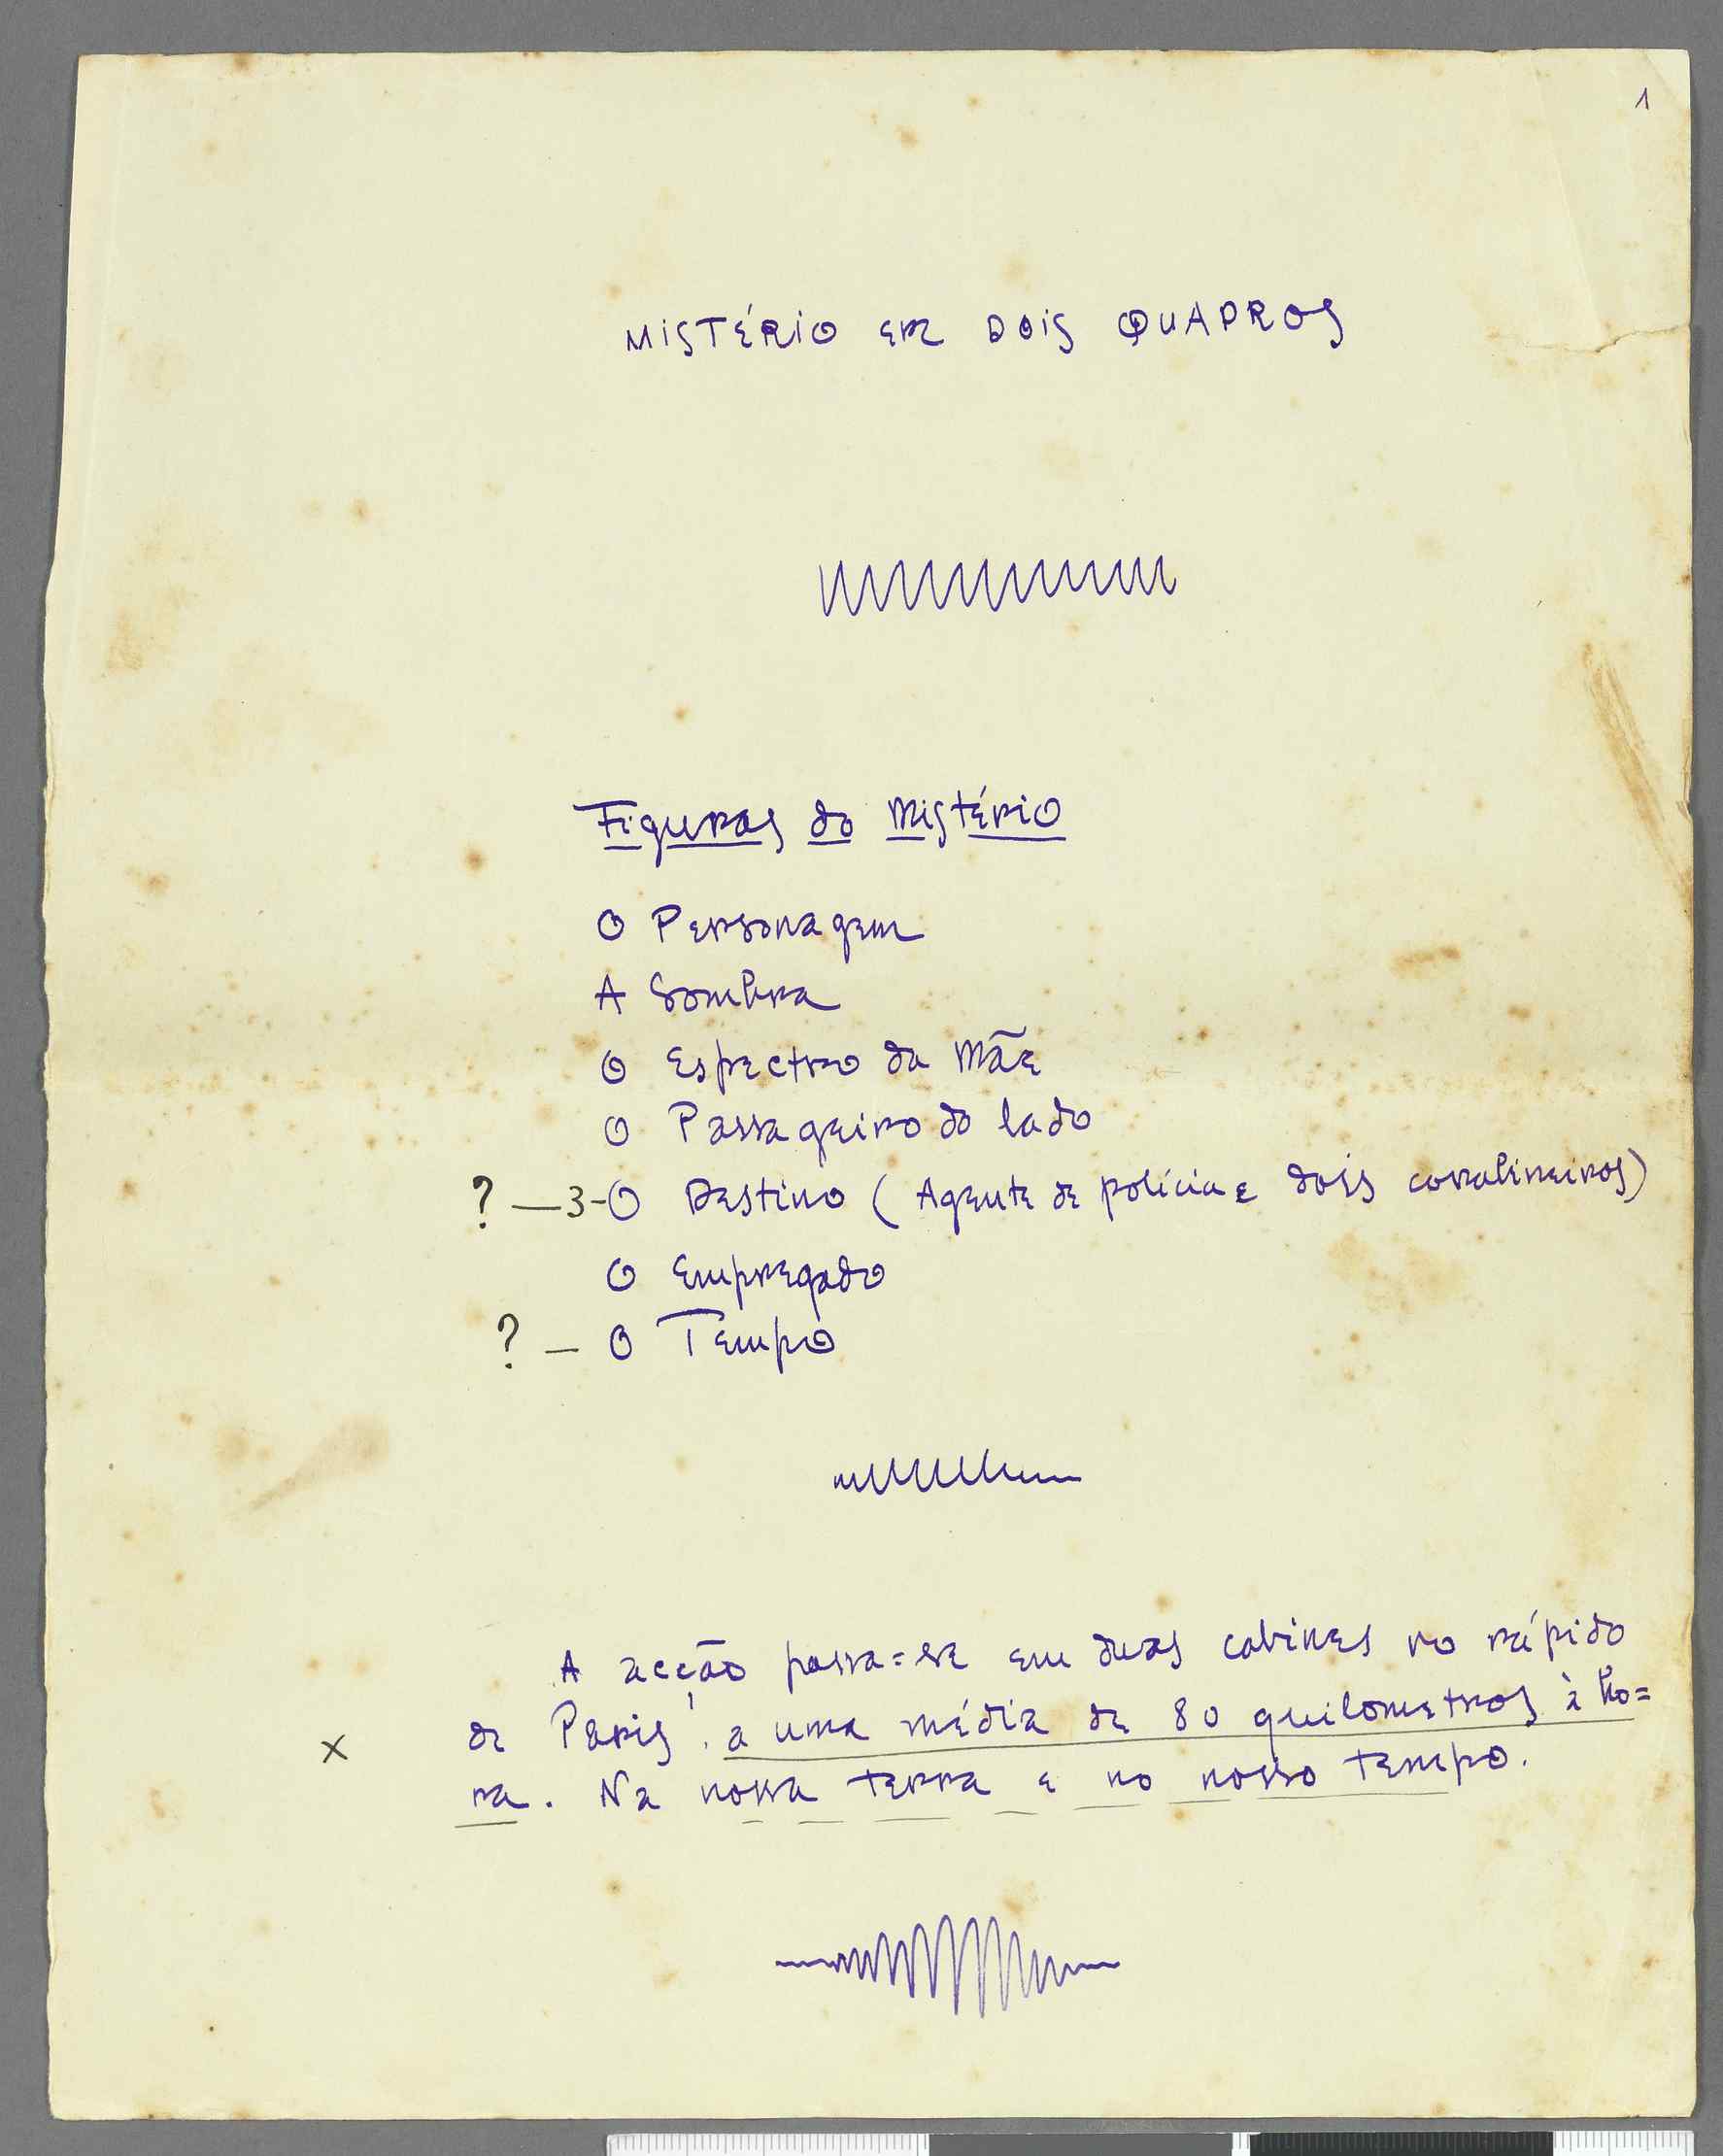 1
MISTÉRIO EM DOIS QUADROS
Figuras do Mistério
O Personagem
A Sombra
O Espectro da Mãe
O Passageiro do lado
? — 3 - O Destino (Agente de polícia e dois carabineiros)
O Empregado
? — O Tempo
A acção passa=se em duas cabines no rápido
x de Paris, a uma média de 80 quilometros à ho=
ra. Na nossa terra e no nosso tempo.